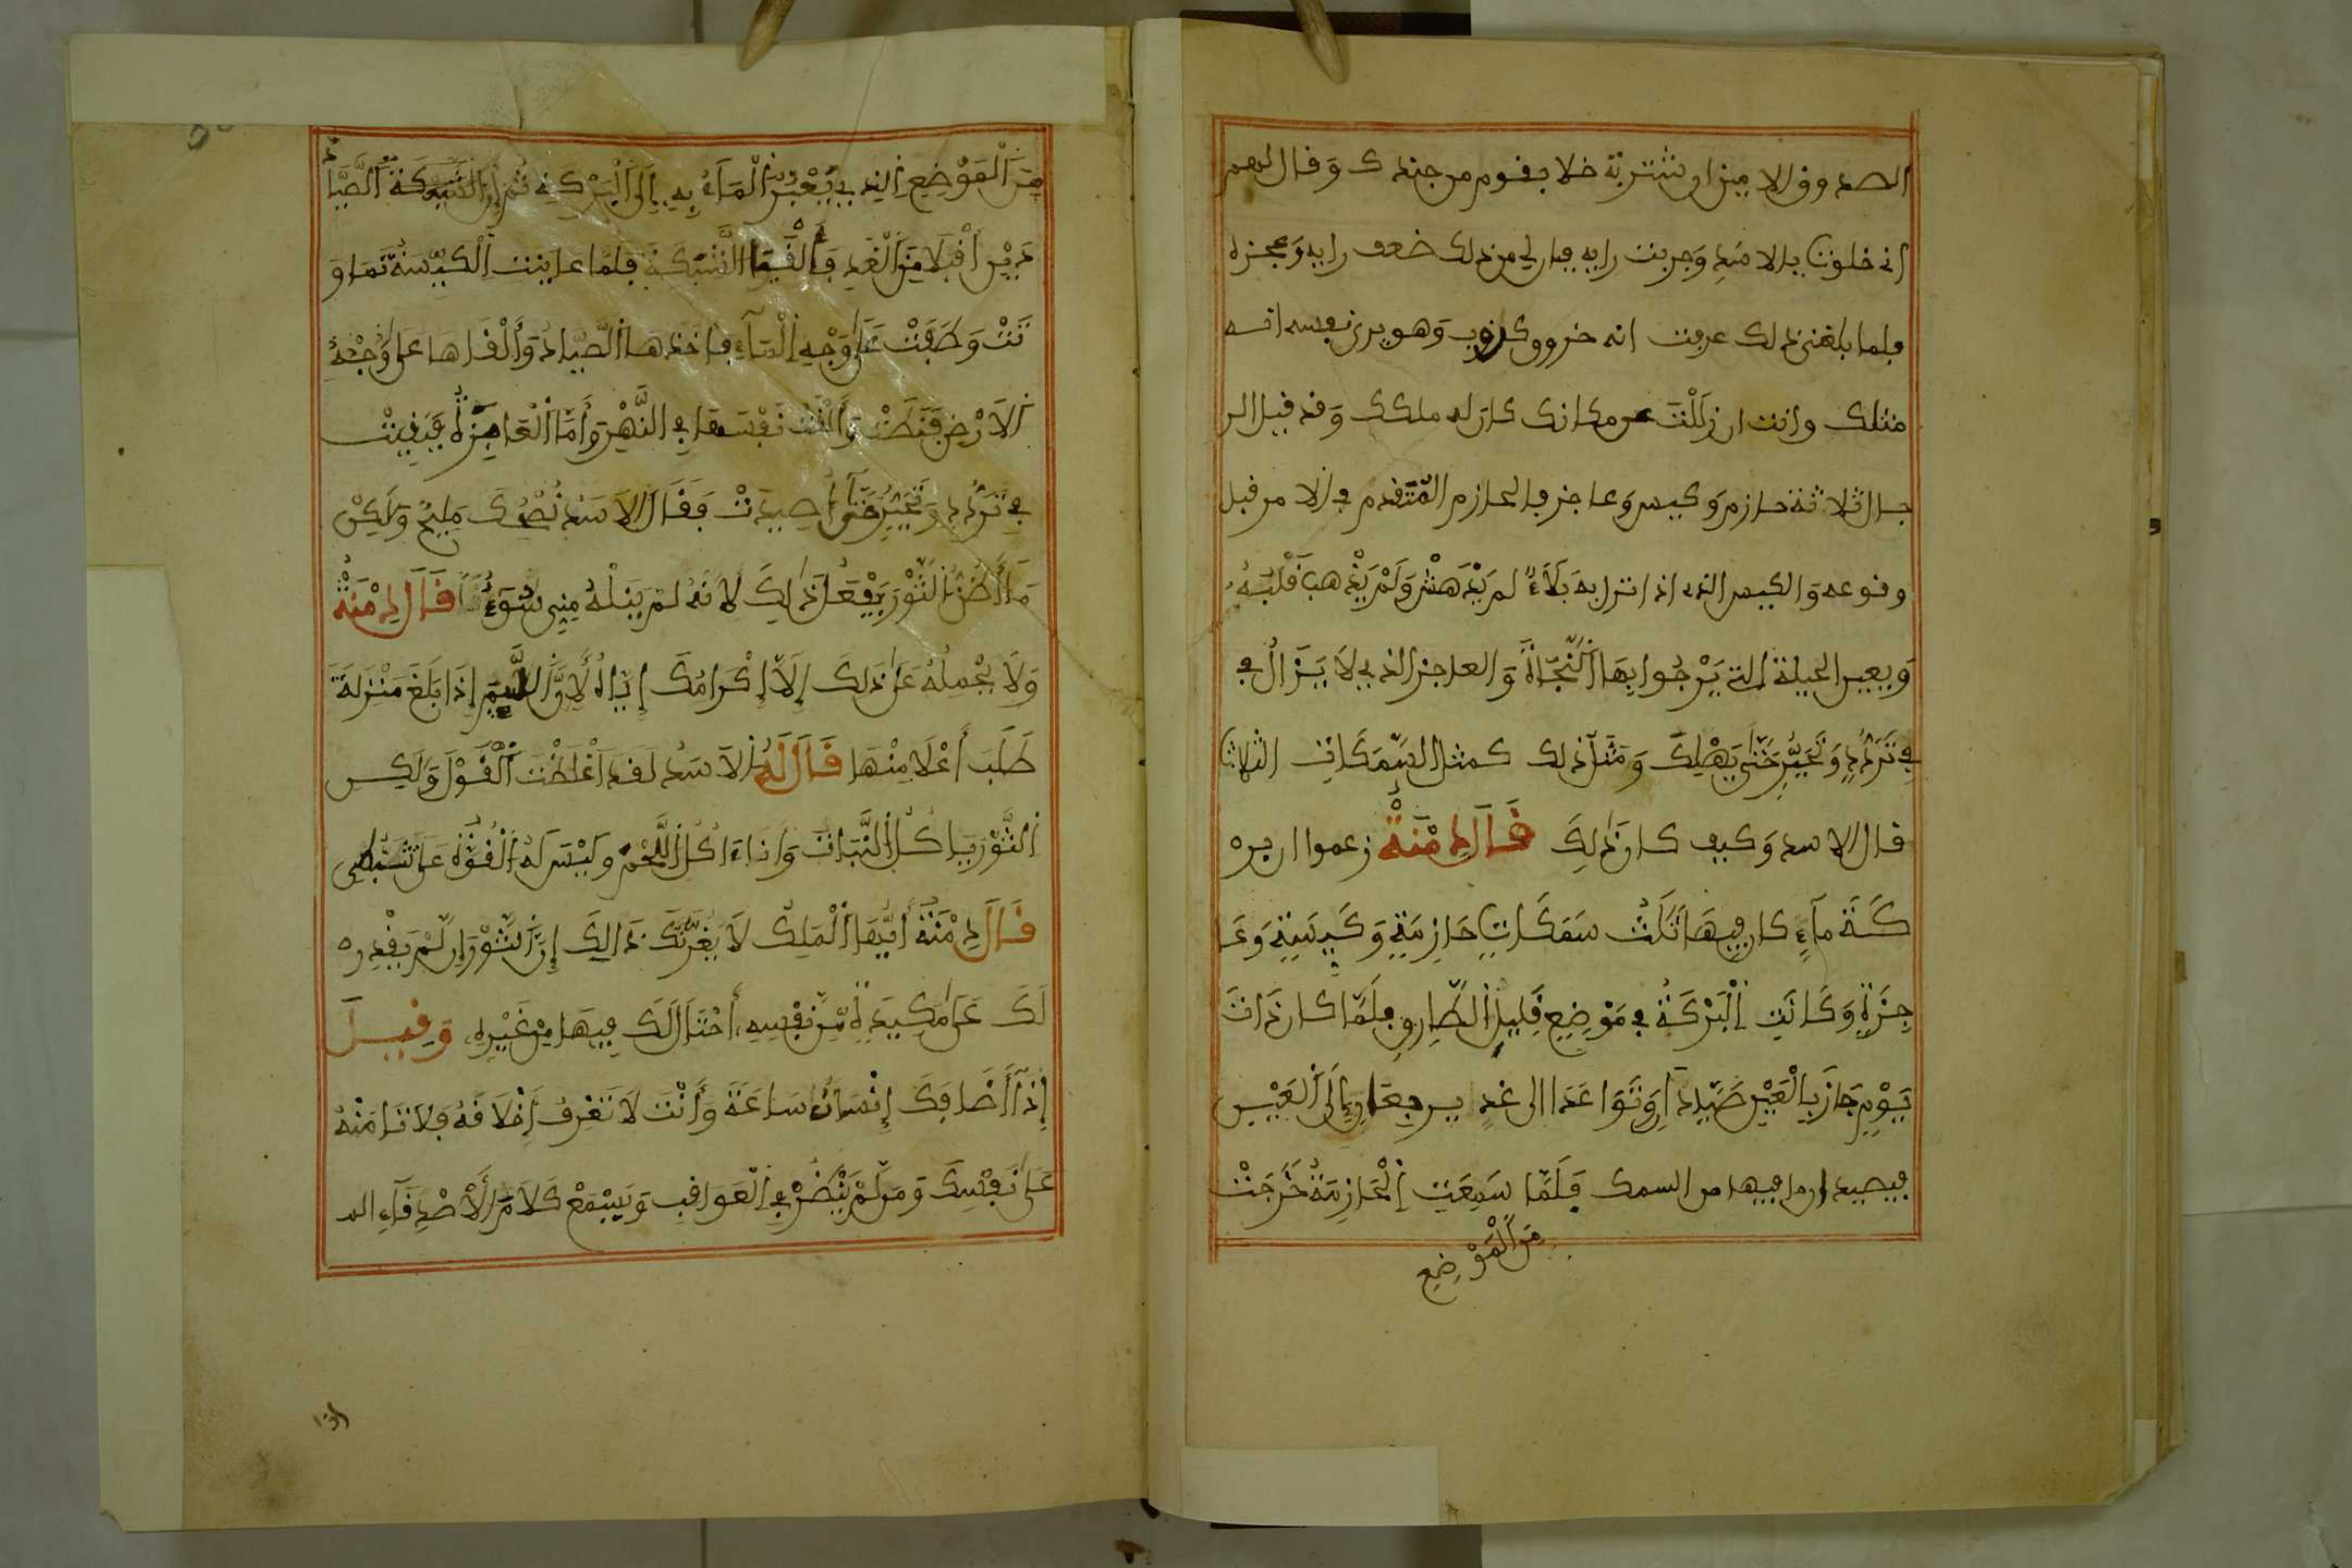 الصدوق الامين ان شتربة خلا بقوم من جندك وقال لهم
اني خلوت بالاسد وجربت رايه فبان لي من ذلك ضعف رايه وعجزه
فلما بلغني ذلك عرفت انه خروف كذوب وهو يرى نفسه انه
مثلك وانت ان زَلَلْتَ عن مكانك كان له ملكك وقد قيل الر
جال ثلاثة حازم وكيس وعاجز فالحازم المتقدم في الامر قبل
وقوعه والكيس الذي اذا نزل به بَلَاءٌ لم يَدْهَشْ وَلَمْ يَذْهب قَلْبُهُ
وَيعيى الحيلة التي يَرْجُوا بِهَا اَلنَّجَاةَ وَالعاجز الذي لَا يَزَالُ في
فِي تَرَدُّدٍ وَتَحَيُّرٍ حَتَّى يَهْلِكَ وَمَثَلُ ذلك كمثل السَّمَكَاتِ الثلاث
قال الاسد وَكيف كان ذٰلِكَ قَالَ دِمْنَةُ زعموا ان بره
كَةَ مَآءٍ كان فِيهَا ثَلَاثُ سَمَكَاتٍ حَازِمَةٍ وَكَيِّسَةٍ وَعَا
جِزَةٍ وَكَانَتِ اِلْبَرْكَةُ فِي مَوْضِعٍ قَلِيلِ الطَّارِقِ فَلَمَّا كَان ذَاتَ
يَوْمٍ جَازَ بِالْعَيْنِ صَيَّادَانِ وَتَوَاعَدَا الى غدٍ يرجعَانِ إِلَى اَلْعَيْنِ
فيصيدان ما فيها من السمك فَلَمَّا سَمِعَتِ اِلْحَازِمَةُ خَرَجَتْ
مِنَ الْمَوْضِعِ
مِنَ اَلْمَوْضِعِ الذي يَعْبُرُ اَلْمَاءُ بِهِ إِلَى اَلْبَرْكَةِ ثُمَّ إِنَّ الشَّبَكَةَ الصَّيَّا
دَيْنِ أَقْبَلَا مِنَ اَلْغَدِ وَأَلْقَيَا الشَّبَكَةَ فلَمَّا عاينت اَلْكَيِّسَةُ تَمَاوَ
تَتْ وَطَفَتْ عَلَى وَجْهِ اِلْمَآءِ فاخذها الصَّيَّادُ وَأَلْقَاهَا عَلَى وَجْهِ
اِلَارْضِ فَنَطَّتْ وَأَلْقَتْ نَفْسَهَا فِي النَّهْرِ وَأَمَّا الْعَاجِزَةُ فَبَقِيَتْ
فِي تَرَدُّدٍ وَتَحَيُّرٍ حَتَّى صِيدَتْ فَقَالَ الَاسَدُ نُصْحُكَ مَلِيحٌ وَلَكِنْ
مَا أَظُنُّ الثَّوْرَ يَفْعَلُ ذٰلِكَ لَانَهُ لَمْ يَنَلْهُ مِنِي سُوءٌ قَالَ دِمْنَةُ
وَلَا يَحْمِلُهُ عَلَى ذَلِكَ إِلَّا إِكْرَامُكَ إِيَاهُ لَاِنَّ اللَّئِيمَ إِذَا بَلَغَ مَنْزِلَةً
طَلَبَ أَعْلَا مِنْهَا قَالَ لَهُ الَاسَدُ لَقَدَ اَغْلَظْتَ اَلْقَوْلَ وَلَكِن
اَلثَّوْرُ يَاكُلُ النَّبَاتَ وَانَاءَاكُلُ اللَّحْمَ وَلَيْسَ لَهُ اَلْقُوَّةُ عَلَى
قَالَ دِمْنَةُ أَيُّهَا الْمَلِكُ لَا يَغُرَّنَّكَ ذَالِكَ إِنَّ الثَّوْرَ إِن لَّمْ يَقْدِره
لَكَ عَلَى مَكِيدَةٍ مِّن نَفْسِهِ اَحْتَالَ لَكَ فِيهَا مِنْ غَيْرِهِ وَقِيلَ
إِذَا أَضَافَكَ إِنْسَانٌ سَاعَةً وَأَنْتَ لَا تَعْرِفُ اَخْلَاقَهُ فَلَا تَامَنْهُ
عَلَى نَفْسِكَ وَمَن لَّمْ يَنْظُرْ فِي اِلْعَوَاقِبِ وَيَسْمَعْ كَلَامَ اَلْأَصْدِقَآءِ الـ